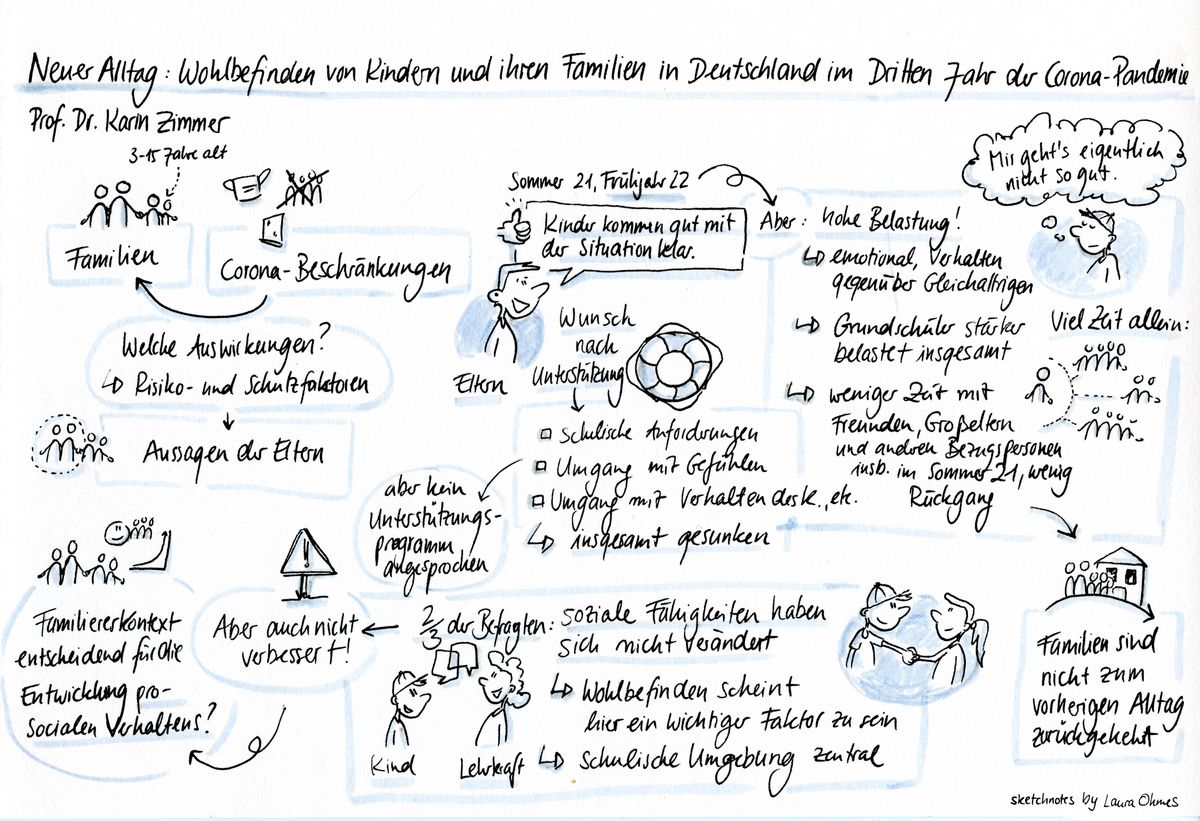 Neuer Alltag: Wohlbefinden von Kindern und ihren Familien in Deutschland im Dritten Jahr der Corona-Pandemie
Prof. Dr. Karin Zimmer
3-15 Jahre alt
Familien
Corona-Beschränkungen
Welche Auswirkungen?
↳ Risiko- und Schutzfaktoren
Aussagen der Eltern
Sommer 21, Frühjahr 22
Kinder kommen gut mit
der Situation klar.
Eltern
Wunsch
nach
Unterstützung
□ schulische Anforderungen
□ Umgang mit Gefühlen
□ Umgang mit Verhalten des K., etc.
↳ insgesamt gesunken
aber kein
Unterstützungs-
programm
angesprochen
Aber: hohe Belastung!
↳ emotional, Verhalten
gegenüber Gleichaltrigen
↳ Grundschüler stärker
belastet insgesamt
↳ weniger Zeit mit
Freunden, Großeltern
und anderen Bezugspersonen
insb. im Sommer 21, wenig
Rückgang
Mir geht's eigentlich
nicht so gut.
Viel Zeit allein:
Familien sind
nicht zum
vorherigen Alltag
zurückgekehrt
2/3 der Befragten: soziale Fähigkeiten haben
sich nicht verändert
↳ Wohlbefinden scheint
hier ein wichtiger Faktor zu sein
↳ schulische Umgebung zentral
Kind
Lehrkraft
!
Aber auch nicht
verbessert!
Familiärer Kontext
entscheidend für die
Entwicklung pro-
socialen Verhaltens?
sketchnotes by Laura Ohmes